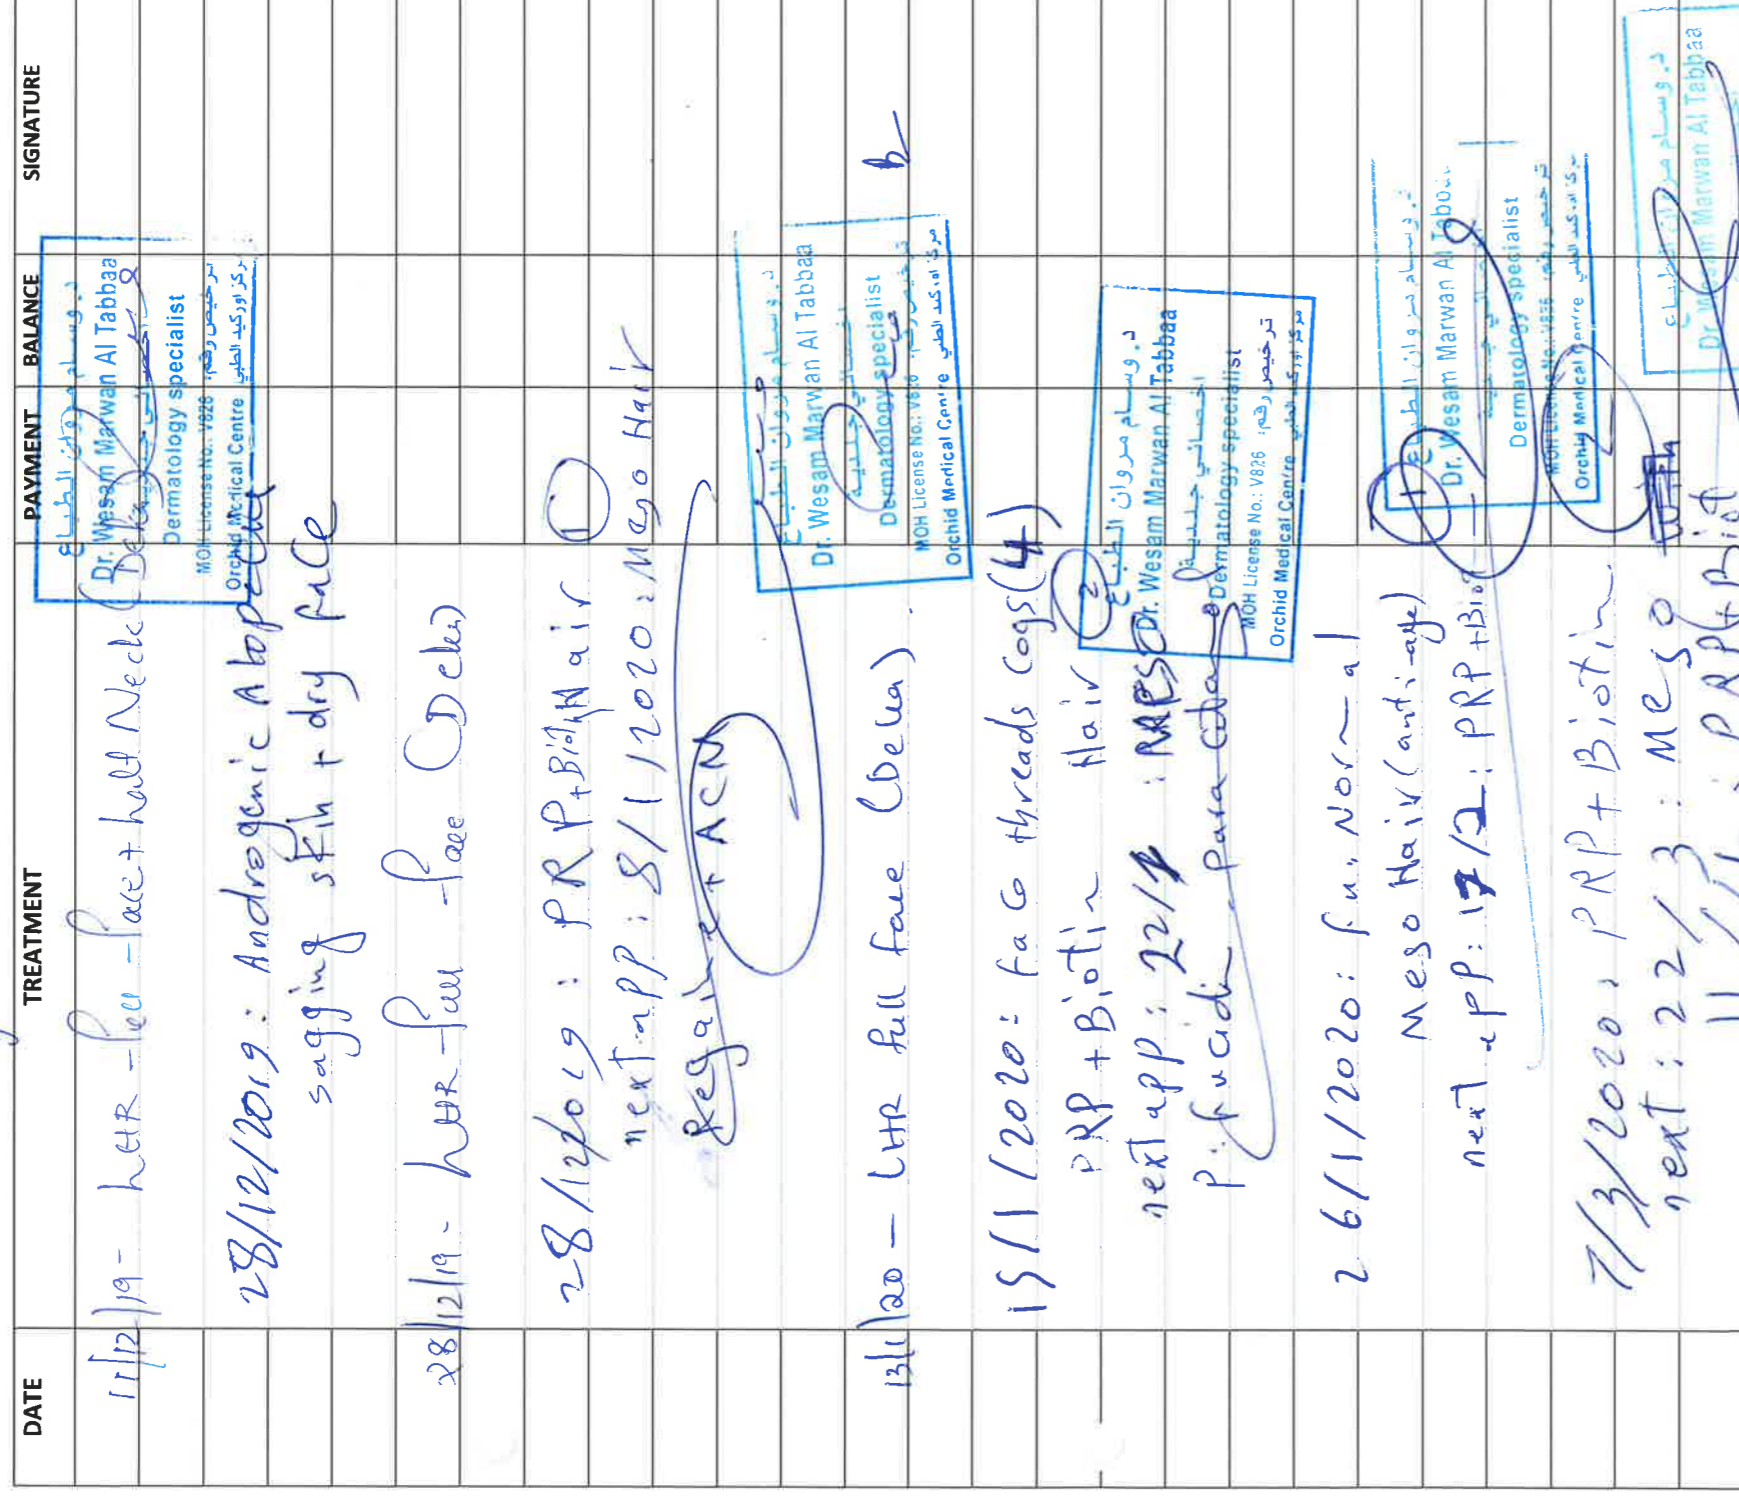 DATE TREATMENT PAYMENT BALANCE SIGNATURE
11/12/19 - LHR - full face + half Neck (Deka
د. وسام مروان الطباع
Dr. Wesam Marwan Al Tabbaa
اخصائي جلدية
Dermatology specialist
MOH License No.: V826 ترخيص رقم:
Orchid Medical Centre مركز اوركيد الطبي
28/12/2019: Androgenic Alopecia
sagging skin + dry face
28/12/19 - LHR - full face (Deka)
28/12/2019: PRP + Biotin Hair 1
next app: 8/1/2020: Meso Hair
Regaine + ACM
د. وسام مروان الطباع
Dr. Wesam Marwan Al Tabbaa
اخصائي جلدية
Dermatology specialist
MOH License No.: V826 ترخيص رقم:
Orchid Medical Centre مركز اوركيد الطبي
13/1/20 - LHR full face (Deka)
15/1/2020: face threads Cogs (4)
PRP + Biotin Hair 2
next app: 22/1
P: fucidin Paracetamol
د. وسام مروان الطباع
Dr. Wesam Marwan Al Tabbaa
اخصائي جلدية
Dermatology specialist
MOH License No.: V826 ترخيص رقم:
Orchid Medical Centre مركز اوركيد الطبي
26/1/2020: fu. Normal
Meso Hair (anti-age) 1
next app: 17/2: PRP + Biot
د. وسام مروان الطباع
Dr. Wesam Marwan Al Tabbaa
اخصائي جلدية
Dermatology specialist
MOH License No.: V826 ترخيص رقم:
Orchid Medical Centre مركز اوركيد الطبي
7/3/2020: PRP + Biotin
next: 22/3: Meso
PRP + Biot
د. وسام مروان الطباع
Dr. Wesam Marwan Al Tabbaa